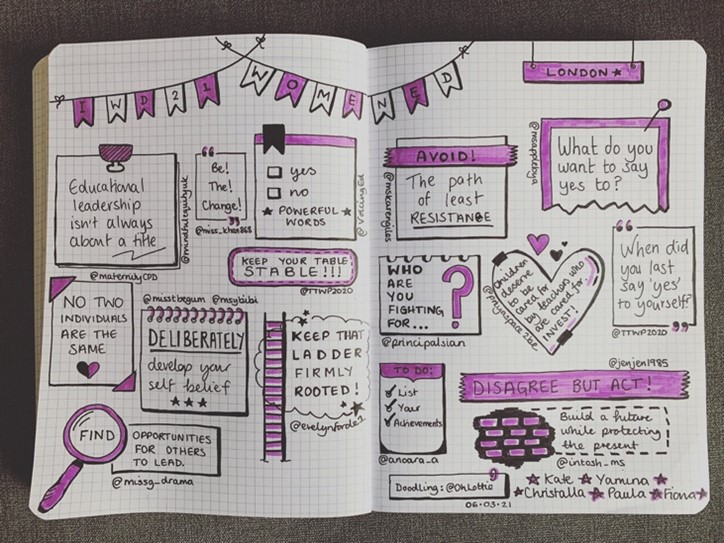 IWD21 WOMENED
LONDON
Educational
leadership
isn't always
about a title
@maternityCPD
"
Be!
The!
Change!
"
@miss_khan868
yes
no
POWERFUL
WORDS
@VoicingEd
KEEP YOUR TABLE
STABLE!!!
@TTWP2020
NO TWO
INDIVIDUALS
ARE THE
SAME
@misstbegum @msybibi
DELIBERATELY
develop your
self belief
KEEP THAT
LADDER
FIRMLY
ROOTED!
FIND
OPPORTUNITIES
FOR OTHERS
TO LEAD.
@missg_drama
AVOID!
The path
of least
RESISTANCE
@mskarengiles
What do you
want to say
yes to?
WHO
ARE
YOU
FIGHTING
FOR...
?
@principalsian
Children
deserve
to be
cared for
by teachers who
are cared for
INVEST!
"
When did
you last
say 'yes'
to yourself?
"
@TTWP2020
TO DO:
List
Your
Achievements
@anoara_a
@jenjen1985
DISAGREE BUT ACT!
Build a future
while protecting
the present
@intosh_ms
Doodling: @OhLottie
06.03.21
Kate Yamina
Christalla Paula Fiona